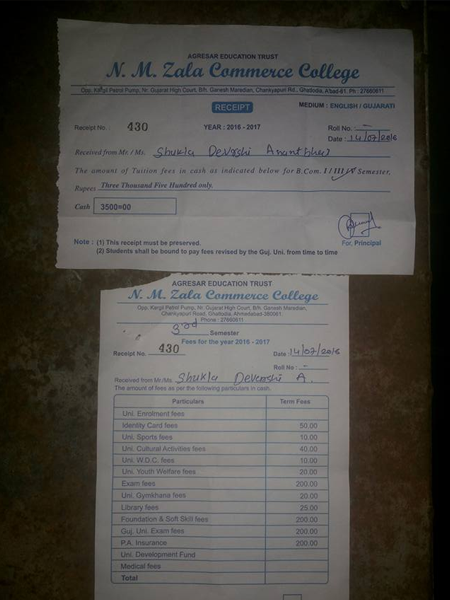 AGRESAR EDUCATION TRUST
N. M. Zala Commerce College
Opp. Kargil Petrol Pump, Nr. Gujarat High Court, B/h. Ganesh Maradian, Chankyapuri Rd., Ghatlodia, Abad-61. Ph : 27690611
RECEIPT
MEDIUM : ENGLISH / GUJARATI
Receipt No. 430 YEAR : 2016 - 2017 Roll No. -
Date : 14/07/2016
Received from Mr. / Ms. Shukla Devarshi Anantbhai
The amount of Tuition fees in cash as indicated below for B.Com. I / III / V Semester,
Rupees Three Thousand Five Hundred only.
Cash 3500=00
For, Principal
Note : (1) This receipt must be preserved.
(2) Students shall be bound to pay fees revised by the Guj. Uni. from time to time
AGRESAR EDUCATION TRUST
N. M. Zala Commerce College
Opp. Kargil Petrol Pump, Nr. Gujarat High Court, B/h. Ganesh Maradian,
Chankyapuri Road, Ghatlodia, Ahmedabad-380061
Phone : 27690611
3rd Semester
Fees for the year 2016 - 2017
Receipt No. 430 Date 14/07/2016
Roll No : -
Received from Mr./Ms. Shukla Devarshi A.
The amount of fees as per the following particulers in cash.
Particulers Term Fees
Uni. Enrolment fees
Identity Card fees 50.00
Uni. Sports fees 10.00
Uni. Cultural Activities fees 40.00
Uni. W.D.C. fees 10.00
Uni. Youth Welfare fees 20.00
Exam fees 200.00
Uni. Gymkhana fees 20.00
Library fees 25.00
Foundation & Soft Skill fees 200.00
Guj. Uni. Exam fees 200.00
P.A. Insurance 200.00
Uni. Development Fund
Medical fees
Total